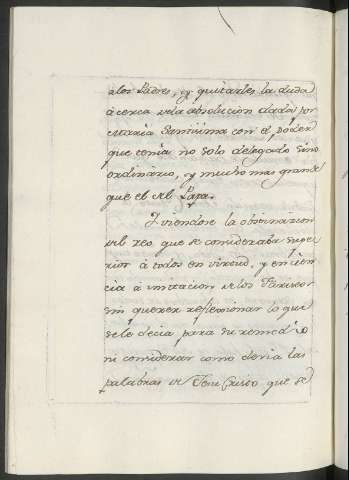 a los Padres, y quitarles la duda
à cerca de la absolucion dada por
Maria Santisima con el poder
que tenia no solo delegado sino
ordinario, y mucho mas grande
que el del Papa.
Y viendose la obstinazion
del reo que se consideraba supe
rior à todos en virtud, y en cien
cia à imitacion de los Fariseos
sin querer reflexionar lo que
se le decia para su remedio
ni considerar como devia las
palabras de Jesu Cristo que se